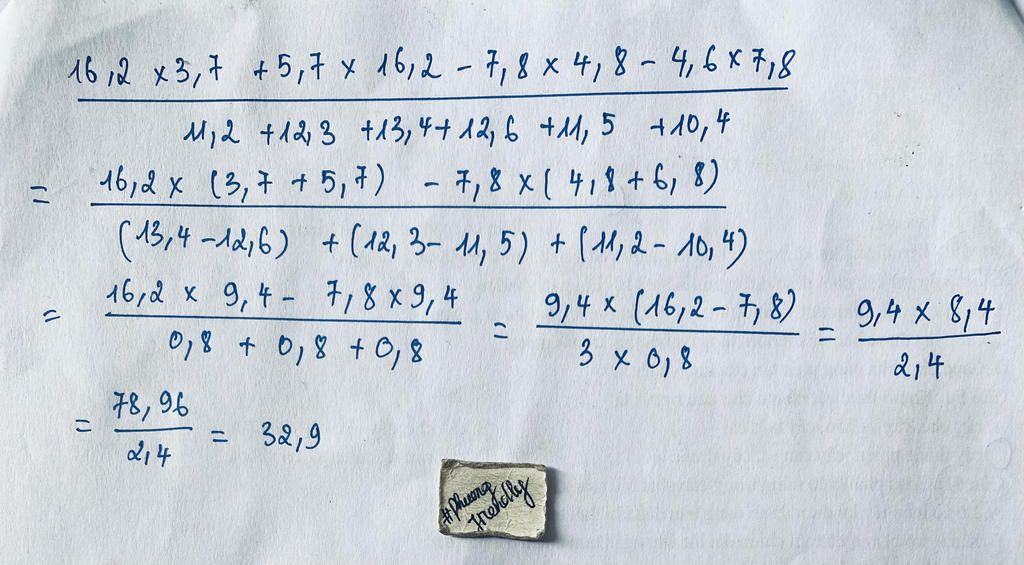 16,2 x 3,7 + 5,7 x 16,2 - 7,8 x 4,8 - 4,6 x 7,8
11,2 + 12,3 + 13,4 + 12,6 + 11,5 + 10,4
= 16,2 x (3,7 + 5,7) - 7,8 x (4,8 + 6,8)
(13,4 - 12,6) + (12,3 - 11,5) + (11,2 - 10,4)
= 16,2 x 9,4 - 7,8 x 9,4 = 9,4 x (16,2 - 7,8) = 9,4 x 8,4
0,8 + 0,8 + 0,8 3 x 0,8 2,4
= 78,96 = 32,9
2,4
#phuong
friendly